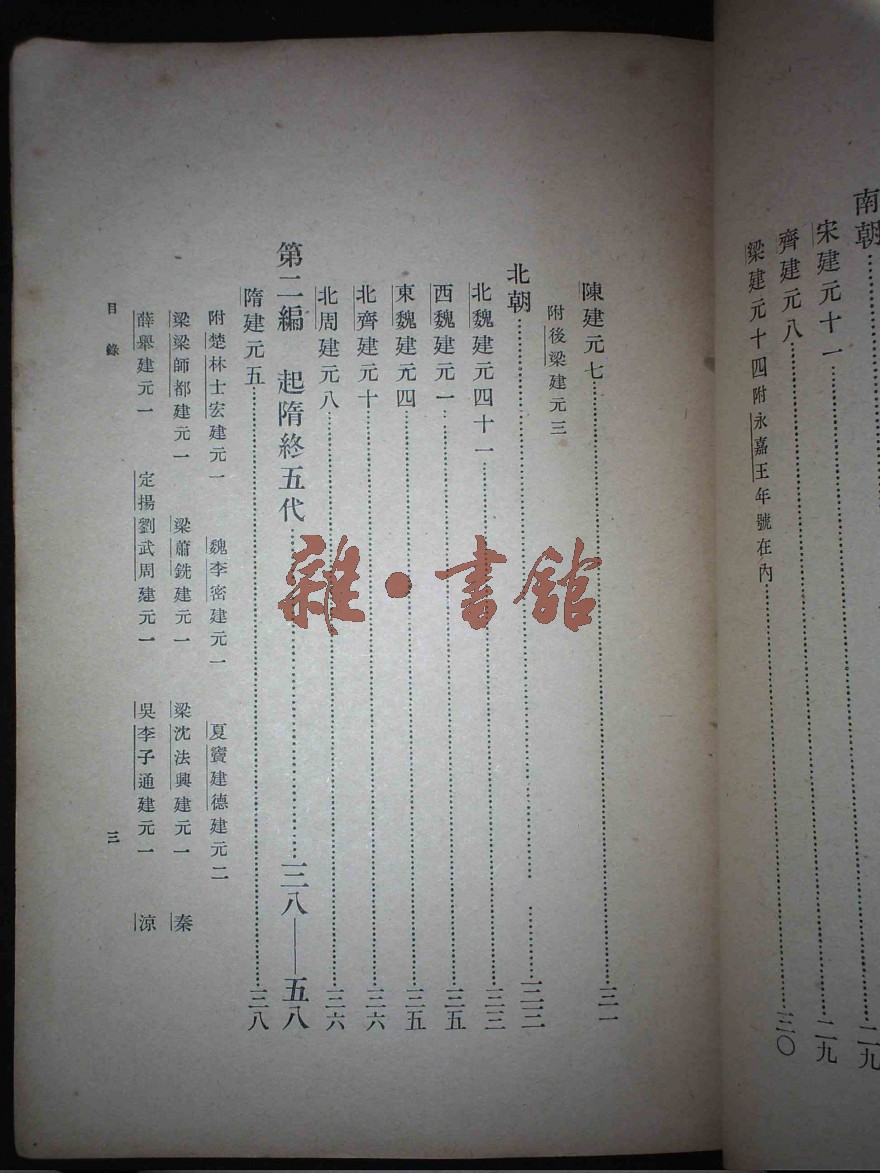 南朝……二九
宋建元十一……二九
齊建元八……三〇
梁建元十四附永嘉王年號在內……
陳建元七……三一
附後梁建元三
北朝……三二
北魏建元四十一……三三
西魏建元一……三五
東魏建元四……三五
北齊建元十……三六
北周建元八……三六
第二編　起隋終五代……三八——五八
隋建元五……三八
附楚林士宏建元一　魏李密建元一　夏竇建德建元二
梁梁師都建元一　梁蕭銑建元一　梁沈法興建元一　秦
薛舉建元一　定揚劉武周建元一　吳李子通建元一　涼
目錄　三
雜·書館